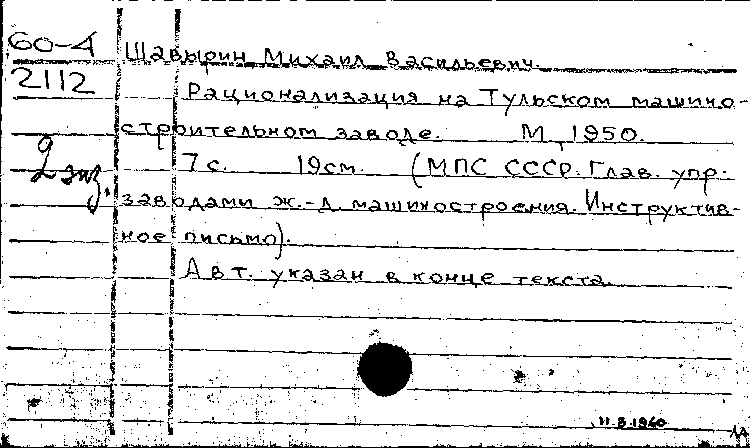 60-4 Шавырин Михаил Васильевич.
2112 Рационализация на Тульском машино-
строительном заводе. М, 1950.
2 экз. 7 с. 19 см. (МПС СССР. Глав. упр.
заводами ж.-д. машиностроения. Инструктив-
ное письмо).
Авт. указан в конце текста.
11.8.1960